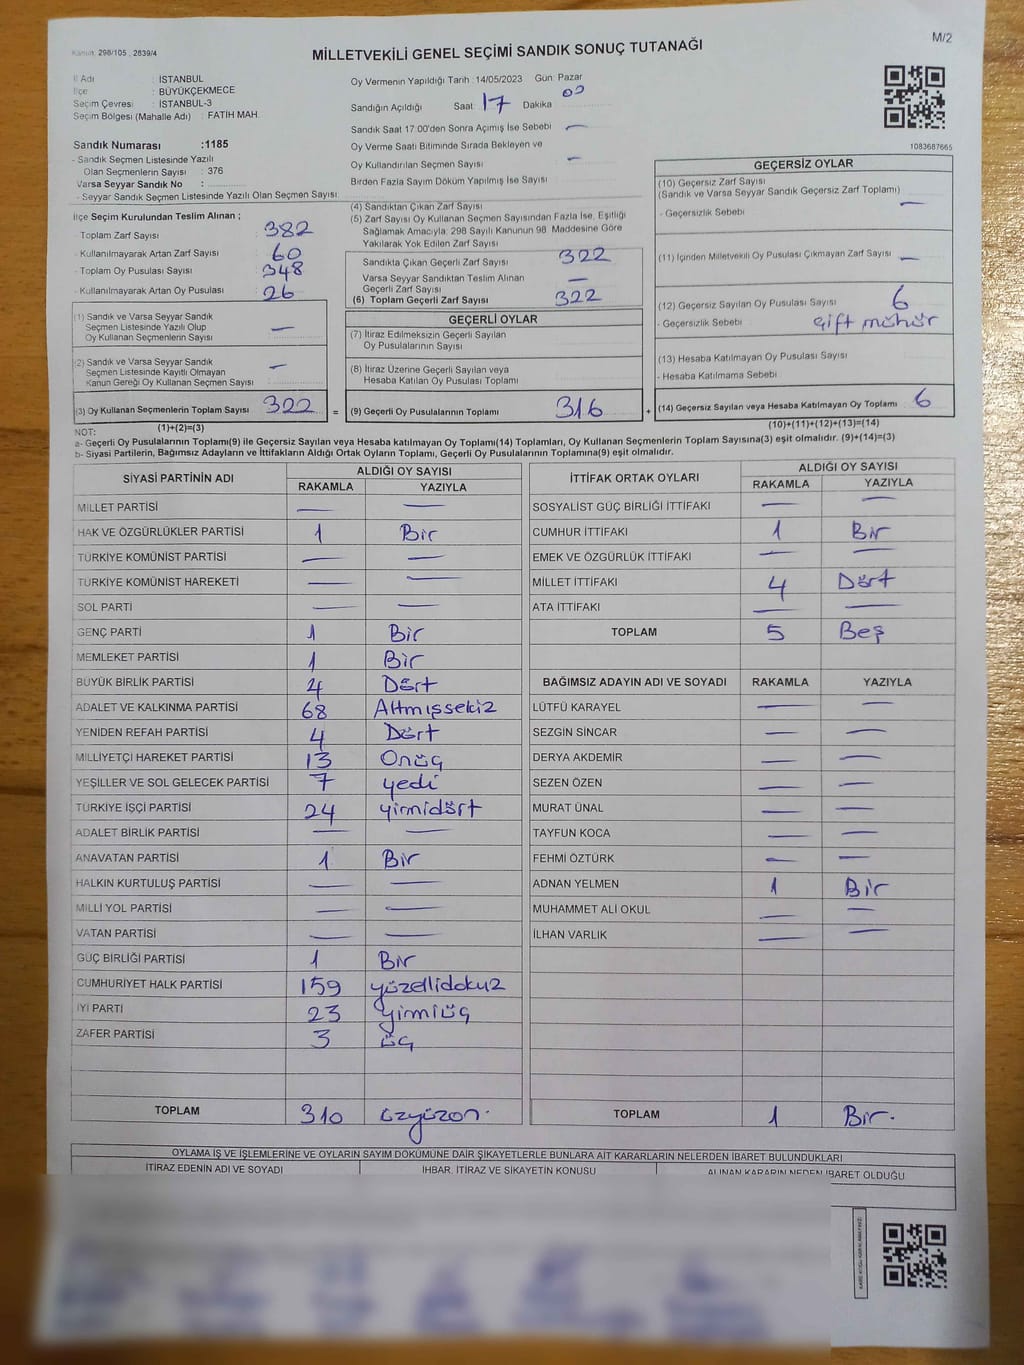 Kanun: 298/105 , 2839/4
M/2
MİLLETVEKİLİ GENEL SEÇİMİ SANDIK SONUÇ TUTANAĞI
İl Adı : İSTANBUL
İlçe : BÜYÜKÇEKMECE
Seçim Çevresi : İSTANBUL-3
Seçim Bölgesi (Mahalle Adı) : FATİH MAH.
Sandık Numarası :1185
- Sandık Seçmen Listesinde Yazılı
Olan Seçmenlerin Sayısı : 376
Varsa Seyyar Sandık No :
- Seyyar Sandık Listesinde Yazılı Olan Seçmen Sayısı:
Oy Vermenin Yapıldığı Tarih : 14/05/2023 Gün: Pazar
Sandığın Açıldığı Saat 17 Dakika 00
Sandık Saat 17:00'den Sonra Açımış İse Sebebi —
Oy Verme Saati Bitiminde Sırada Bekleyen ve
Oy Kullandırılan Seçmen Sayısı —
Birden Fazla Sayım Döküm Yapılmış İse Sayısı
1083687665
İlçe Seçim Kurulundan Teslim Alınan ;
- Toplam Zarf Sayısı 382
- Kullanılmayarak Artan Zarf Sayısı 60
- Toplam Oy Pusulası Sayısı 348
- Kullanılmayarak Artan Oy Pusulası 26
(1) Sandık ve Varsa Seyyar Sandık
Seçmen Listesinde Yazılı Olup
Oy Kullanan Seçmenlerin Sayısı —
(2) Sandık ve Varsa Seyyar Sandık
Seçmen Listesinde Kayıtlı Olmayan
Kanun Gereği Oy Kullanan Seçmen Sayısı —
(3) Oy Kullanan Seçmenlerin Toplam Sayısı 322
(1)+(2)=(3)
(4) Sandıktan Çıkan Zarf Sayısı
(5) Zarf Sayısı Oy Kullanan Seçmen Sayısından Fazla İse, Eşitliği
Sağlamak Amacıyla, 298 Sayılı Kanunun 98. Maddesine Göre
Yakılarak Yok Edilen Zarf Sayısı
Sandıkta Çıkan Geçerli Zarf Sayısı 322
Varsa Seyyar Sandıktan Teslim Alınan
Geçerli Zarf Sayısı —
(6) Toplam Geçerli Zarf Sayısı 322
GEÇERLİ OYLAR
(7) İtiraz Edilmeksizin Geçerli Sayılan
Oy Pusulalarının Sayısı
(8) İtiraz Üzerine Geçerli Sayılan veya
Hesaba Katılan Oy Pusulası Toplamı
= (9) Geçerli Oy Pusulalarının Toplamı 316
GEÇERSİZ OYLAR
(10) Geçersiz Zarf Sayısı
(Sandık ve Varsa Seyyar Sandık Geçersiz Zarf Toplamı)
- Geçersizlik Sebebi —
(11) İçinden Milletvekili Oy Pusulası Çıkmayan Zarf Sayısı —
(12) Geçersiz Sayılan Oy Pusulası Sayısı 6
- Geçersizlik Sebebi Çift mühür
(13) Hesaba Katılmayan Oy Pusulası Sayısı
- Hesaba Katılmama Sebebi
+ (14) Geçersiz Sayılan veya Hesaba Katılmayan Oy Toplamı 6
(10)+(11)+(12)+(13)=(14)
NOT:
a- Geçerli Oy Pusulalarının Toplamı(9) ile Geçersiz Sayılan veya Hesaba katılmayan Oy Toplamı(14) Toplamları, Oy Kullanan Seçmenlerin Toplam Sayısına(3) eşit olmalıdır. (9)+(14)=(3)
b- Siyasi Partilerin, Bağımsız Adayların ve İttifakların Aldığı Ortak Oyların Toplamı, Geçerli Oy Pusulalarının Toplamına(9) eşit olmalıdır.
SİYASİ PARTİNİN ADI ALDIĞI OY SAYISI
RAKAMLA YAZIYLA
MİLLET PARTİSİ — —
HAK VE ÖZGÜRLÜKLER PARTİSİ 1 Bir
TÜRKİYE KOMÜNİST PARTİSİ — —
TÜRKİYE KOMÜNİST HAREKETİ — —
SOL PARTİ — —
GENÇ PARTİ 1 Bir
MEMLEKET PARTİSİ 1 Bir
BÜYÜK BİRLİK PARTİSİ 4 Dört
ADALET VE KALKINMA PARTİSİ 68 Altmışsekiz
YENİDEN REFAH PARTİSİ 4 Dört
MİLLİYETÇİ HAREKET PARTİSİ 13 Onüç
YEŞİLLER VE SOL GELECEK PARTİSİ 7 yedi
TÜRKİYE İŞÇİ PARTİSİ 24 yirmidört
ADALET BİRLİK PARTİSİ — —
ANAVATAN PARTİSİ 1 Bir
HALKIN KURTULUŞ PARTİSİ — —
MİLLİ YOL PARTİSİ — —
VATAN PARTİSİ — —
GÜÇ BİRLİĞİ PARTİSİ 1 Bir
CUMHURİYET HALK PARTİSİ 159 yüzellidokuz
İYİ PARTİ 23 yirmiüç
ZAFER PARTİSİ 3 üç
TOPLAM 310 üçyüzon.
İTTİFAK ORTAK OYLARI ALDIĞI OY SAYISI
RAKAMLA YAZIYLA
SOSYALİST GÜÇ BİRLİĞİ İTTİFAKI — —
CUMHUR İTTİFAKI 1 Bir
EMEK VE ÖZGÜRLÜK İTTİFAKI — —
MİLLET İTTİFAKI 4 Dört
ATA İTTİFAKI — —
TOPLAM 5 Beş
BAĞIMSIZ ADAYIN ADI VE SOYADI RAKAMLA YAZIYLA
LÜTFÜ KARAYEL — —
SEZGİN SİNCAR — —
DERYA AKDEMİR — —
SEZEN ÖZEN — —
MURAT ÜNAL — —
TAYFUN KOCA — —
FEHMİ ÖZTÜRK — —
ADNAN YELMEN 1 Bir
MUHAMMET ALİ OKUL — —
İLHAN VARLIK — —
TOPLAM 1 Bir.
OYLAMA İŞ VE İŞLEMLERİNE VE OYLARIN SAYIM DÖKÜMÜNE DAİR ŞİKAYETLERLE BUNLARA AİT KARARLARIN NELERDEN İBARET BULUNDUKLARI
İTİRAZ EDENİN ADI VE SOYADI İHBAR, İTİRAZ VE ŞİKAYETİN KONUSU ALINAN KARARIN NEDEN İBARET OLDUĞU